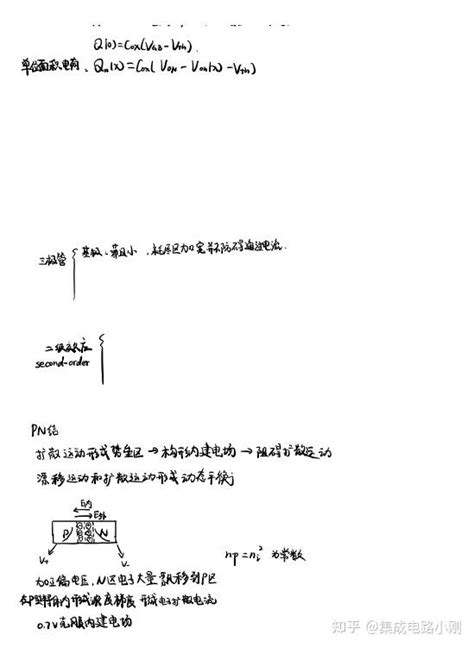 Q(0)=Cox(VGB-Vth).
单位面积电荷、Qn(x)=Cox(VGN-Von(x)-Vth)
三极管 { 基极、薄且小,耗尽区加宽并不阻碍通过电流.
二级效应
second-order {
PN结
扩散运动形成势垒区→构形内建电场→阻碍扩散运动
漂移运动和扩散运动形成动态平衡
E内
E外
P N
V+ V-
np=ni² 为常数
加正偏电压,N区电子大量飘移到P区
内形成浓度梯度 形成电子扩散电流
0.7V克服内建电场
知乎 @集成电路小刚